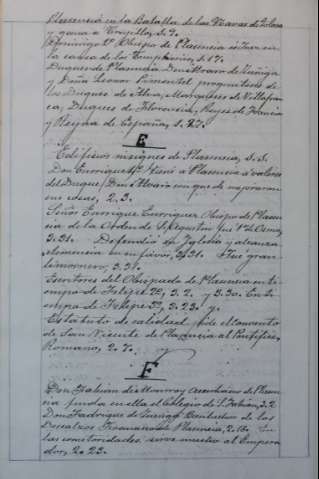 Plasencia en la Batalla de las Navas de Tolosa
y gana a Trugillo, 1.7.
Domingo 2º Obispo de Plasencia es Juez en
la causa de los Templarios, 1.17.
Duques de Plasencia Don Alvaro de Zuñiga
y Doña Leonor Pimentel progenitores de
los Duques de Alba, Marqueses de Villafran
ca, Duques de Florencia, Reyes de Francia
y Reyna de España, 1.27.
E
Edificios insignes de Plasencia, 1.3.
Don Enrrique 4º
del Duque Don Alvaro con que de
2.3.
Señor Enrrique Enrriquez Obispo de Plasen
cia de la Orden de S. Agustin fue 1º de Osma,
3.31. Defendio su Iglesia y alcanza
en su favor, 3.31. Fue gran
limosnero, 3.31.
Escritores del Obispado de Plasencia en ti
empo de Felipe 2º, 3.2. y 3.30. En ti
empo de Felipe 3º, 3.23. y.
Estatuto de calidad, pide el convento
de San Vicente de Plasencia al Pontifice
Romano, 2.7.
F
Don Fabian de Monroy Arcediano de Plasen
cia funda en ella el Colegio de S. Fabian, 3.2
Don Fadrique de Zuñiga de los
Descalzos Franciscanos de Plasencia, 2.18. En
las comunidades sirve mucho al Empera
dor, 2.23.